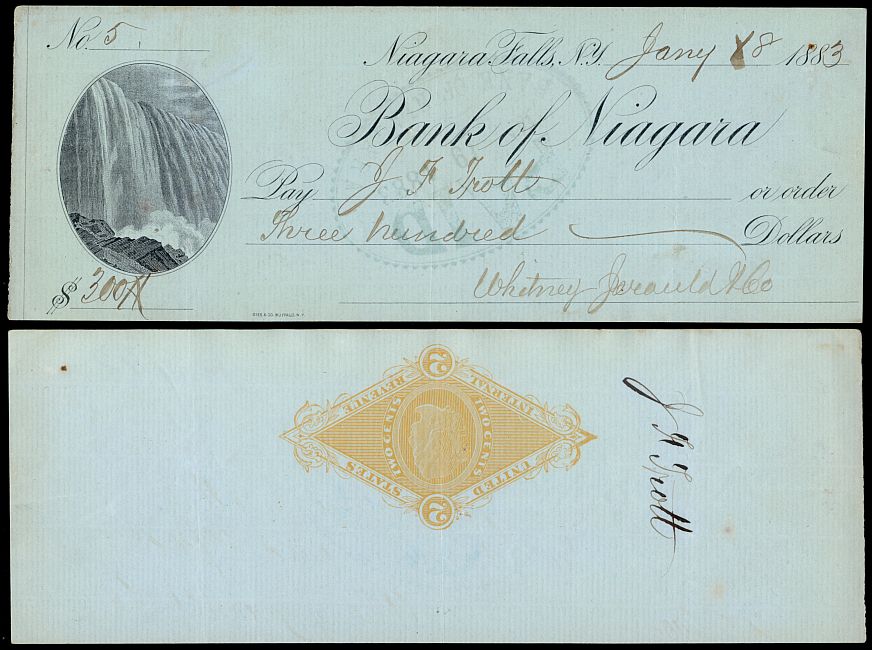 No. 5
Niagara Falls, N.Y. Jany 18 1883
Bank of Niagara
Pay J F Trott or order
Three hundred Dollars
Whitney Jerauld & Co
$ 300
GIES & CO. BUFFALO, N.Y.
2
INTERNAL REVENUE
TWO CENTS
TWO CENTS
UNITED STATES
2
J F Trott